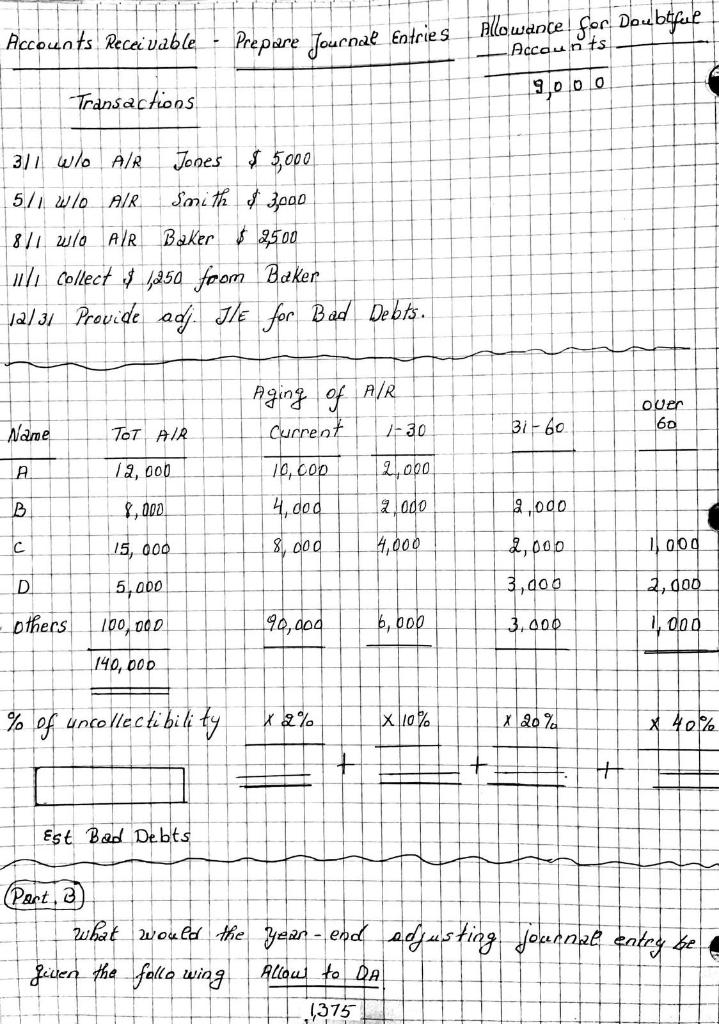 Accounts Receivable - Prepare Journal Entries Allowance for Doubtful Accounts
9,000
Transactions
3/1 W/o A/R Jones $ 5,000
5/1 W/o A/R Smith $ 3,000
8/1 W/o A/R Baker $ 2,500
11/1 Collect $ 1,250 from Baker
12/31 Provide adj. J/E for Bad Debts.
Aging of A/R
Name TOT A/R Current 1-30 31-60 over 60
A 12,000 10,000 2,000
B 8,000 4,000 2,000 2,000
C 15,000 8,000 4,000 2,000 1,000
D 5,000 3,000 2,000
others 100,000 90,000 6,000 3,000 1,000
140,000
% of uncollectibility x 2% x 10% x 20% x 40%
+ + +
Est Bad Debts
Part, B
What would the year-end adjusting journal entry be
given the following Allow to DA
1,375